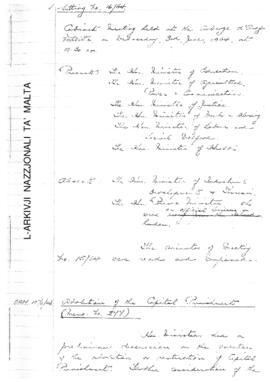 Sitting No. 16/64
Cabinet Meeting held at the Auberge d'
Valletta on Wednesday, 3rd June, 1964, at
Present:
The Hon. Minister of Education
The Hon. Minister of
The Hon. Minister of Justice
The Hon. Minister of Works & Housing
The Hon. Minister of Labour and
Social Welfare
The Hon. Minister of Health
Absent:
The Hon. Minister of Industrial
Development & Tourism
The Hon. Prime Minister
on official business in
London.
The Minutes of Meeting
No. 15/64 were read and confirmed.
Abolition of the Capital Punishment
(Memo. No. 244)
The Ministers had a
preliminary discussion on the question
of the abolition or restriction of Capital
Punishment. Further consideration of the
L-ARKIVJI NAZZJONALI TA' MALTA